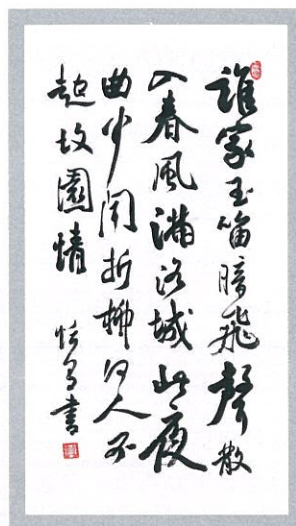 誰家玉笛暗飛聲散
入春風滿洛城此夜
曲中聞折柳何人不
起故園情
書